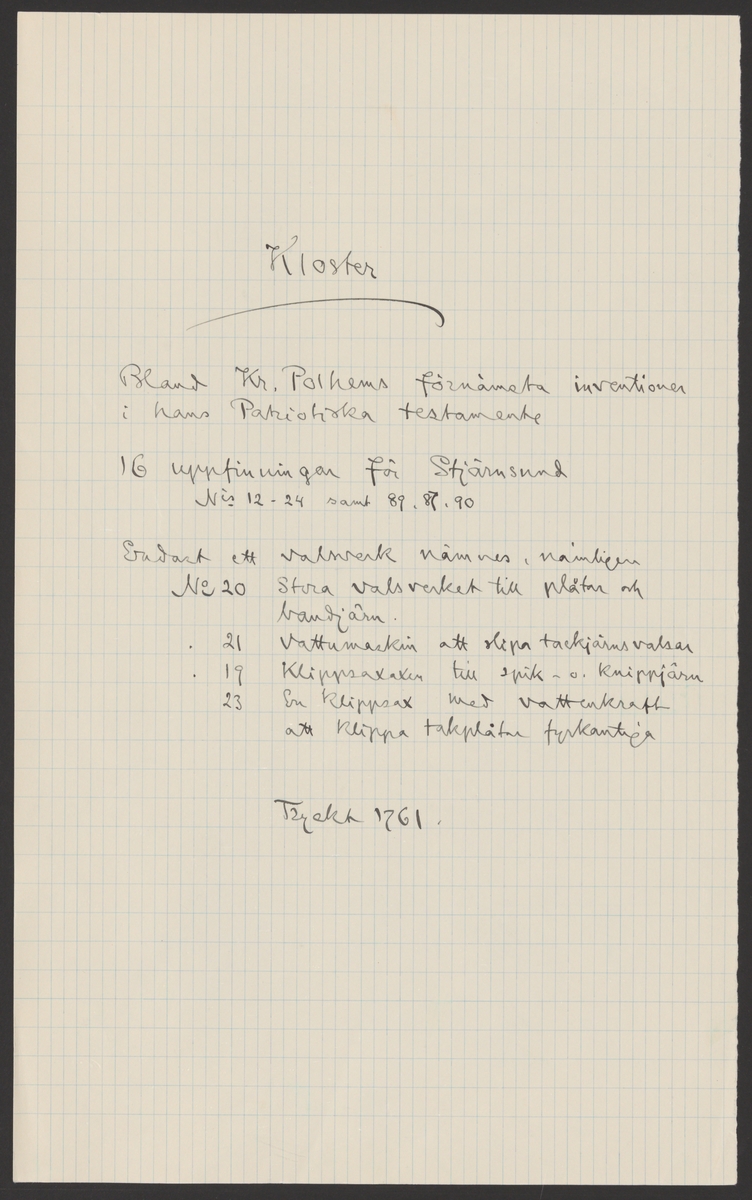 Kloster
Bland Kr. Polhems förnämsta inventioner
i hans Patriotiska testamente
16 uppfinningar för Stjärnsund
Nis 12-24 samt 89. 87. 90
Endast ett valsverk nämnes, nämligen
No 20 Stora valsverket till plåtar och
bandjärn.
. 21 Vattumaskin att slipa tackjärnsvalsar
. 19 Klippsaxaxen till spik- o. knippjärn
23 En klippsax med vattenkraft
att klippa takplåtar fyrkantiga
Tryckt 1761.